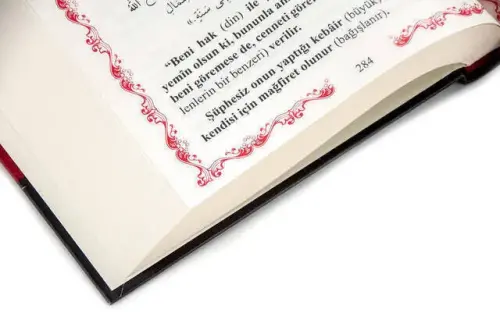 “Beni hak (din) ile
yemin olsun ki, bununla am
beni göremese de, cenneti göre
lenlerin bir benzeri) verilir.
Şüphesiz onun yaptığı kebâir (büyük)
kendisi için mağfiret olunur (bağışlanır).
284